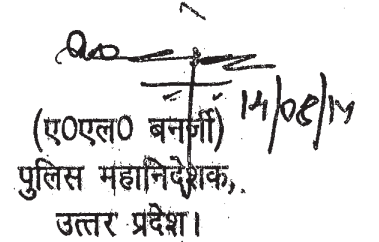 14/08/14
(ए0एल0 बनर्जी)
पुलिस महानिदेशक,
उत्तर प्रदेश।